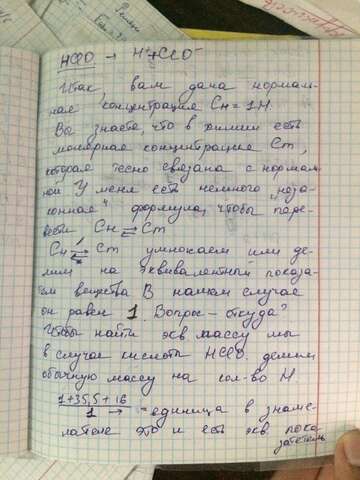 HClO → H⁺ClO⁻
Итак, вам дана нормаль-
ная концентрация Cн = 1Н.
Вы знаете, что в химии есть
молярная концентрация Cm,
которая тесно связана с нормаль-
ной У меня есть немного „неза-
конная" формула, чтобы пере-
вести Cн ⇄ Cm
Cн ⇄ Cm умножаем или де-
лим на эквивалентный показа-
тель вещества В нашем случае
он равен 1. Вопрос – откуда?
Чтобы найти экв массу мы
в случае кислоты HClO делим
обычную массу на кол-во H.
1+35,5+16
1 → единица в знаме-
нателе это и есть экв пока
затель